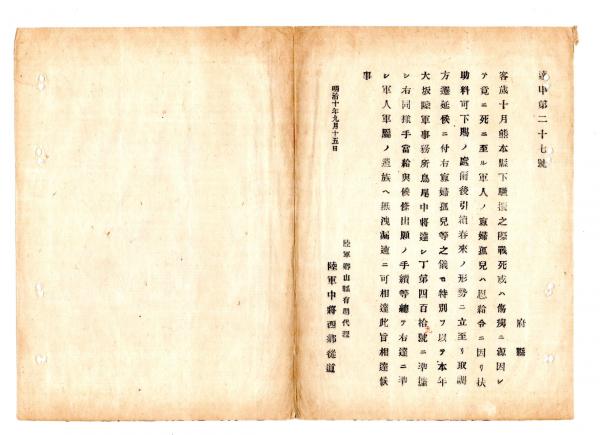 達申第二十七號
府縣
客歳十月熊本縣下騷擾之際戰死或ハ傷痍ニ源因シ
テ竟ニ死ニ至ル軍人ノ寡婦孤兒ハ恩給令ニ因リ扶
助料可下賜ノ處前後引續春來ノ形勢ニ立至リ取調
方遷延候ニ付右寡婦孤兒等之儀モ特別ヲ以テ本年
大坂陸軍事務所鳥尾中將達シ丁第四百拾號ニ準據
シ右同樣手當給與候條出願ノ手續等總テ右達ニ準
シ軍人軍屬ノ遺族ヘ無洩漏速ニ可相達此旨相達候
事
明治十年九月十五日
陸軍卿山縣有朋代理
陸軍中將西鄕從道